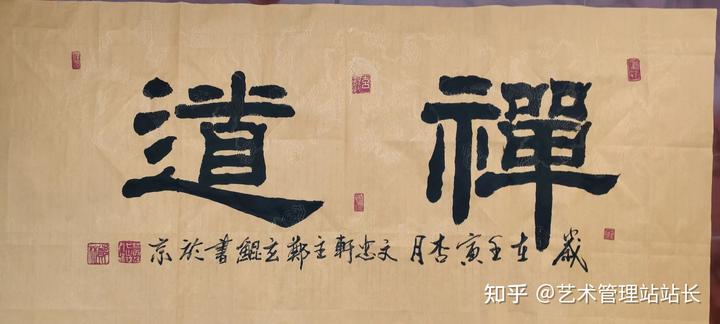 禪道
歲在壬寅杏月文忠軒主鄭玄鯤書於京
知乎 @艺术管理站站长